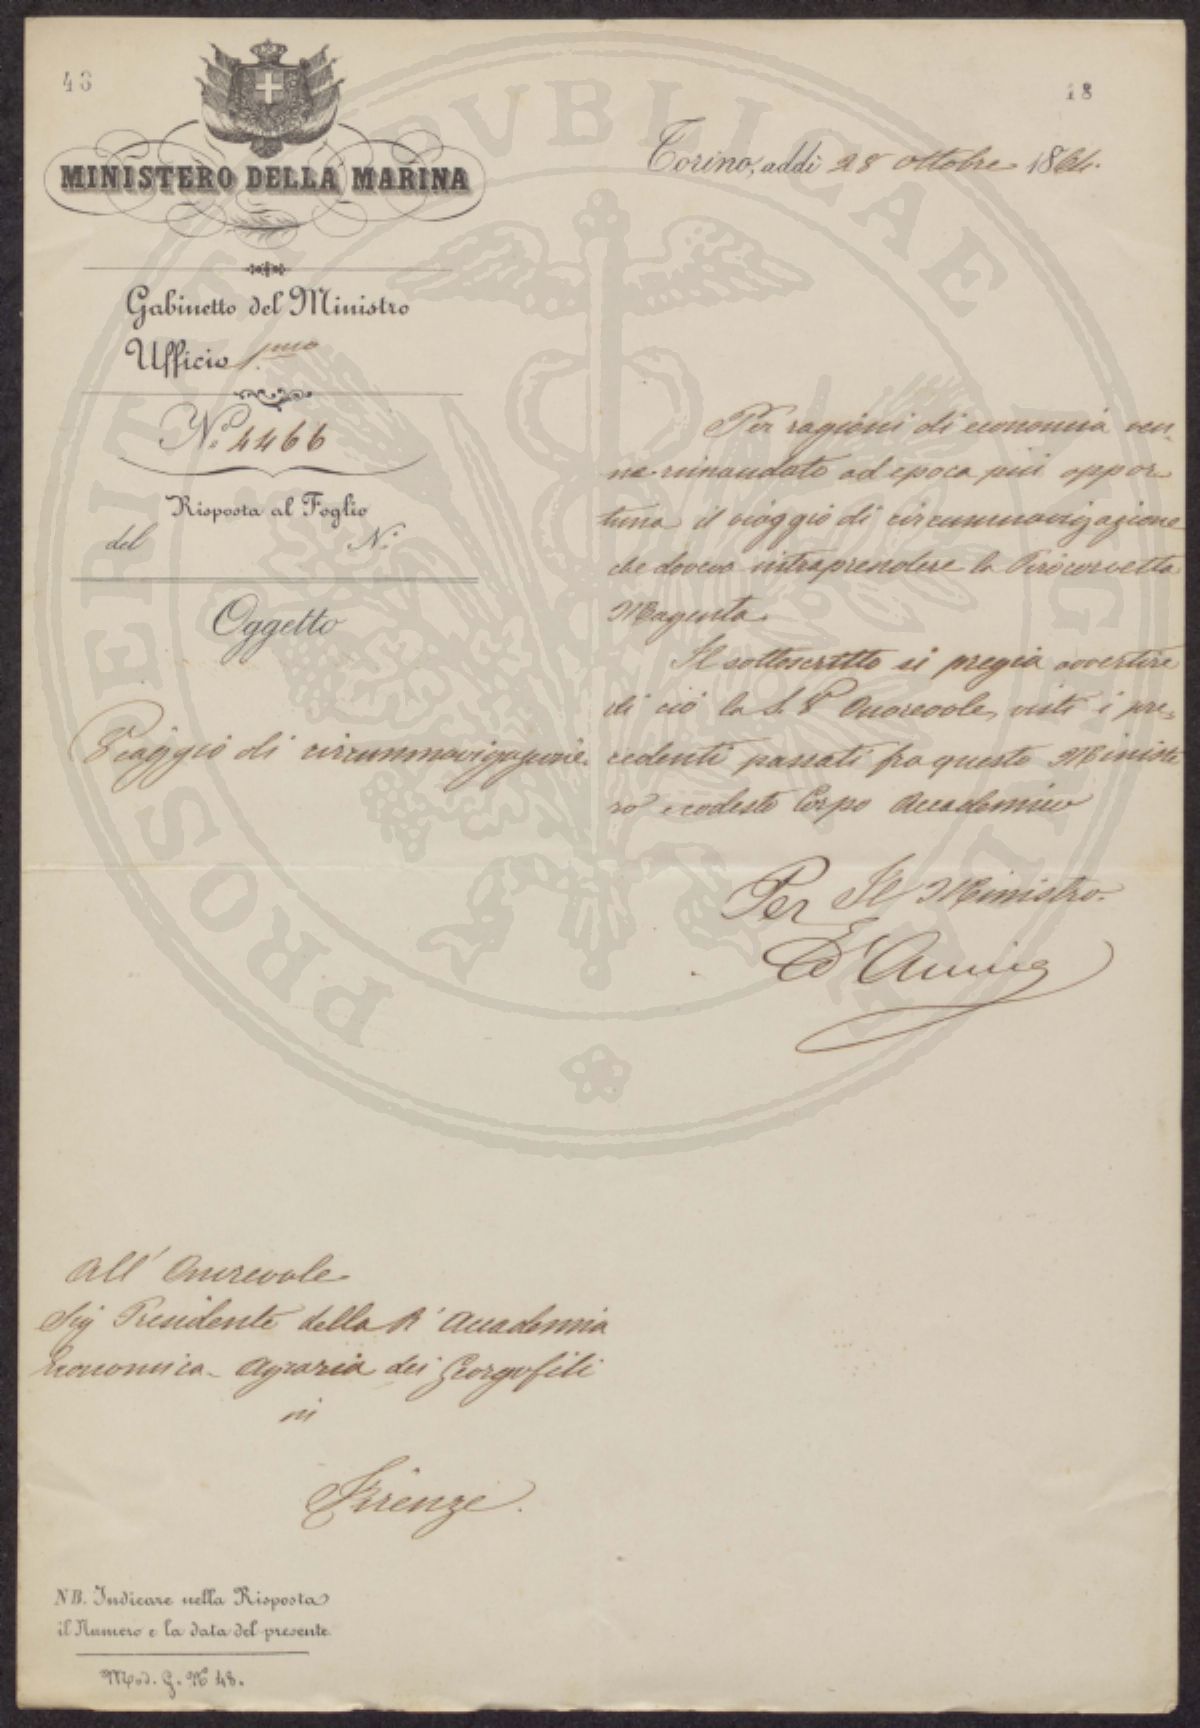 48
18
MINISTERO DELLA MARINA
Torino, addì 28 ottobre 1864.
Gabinetto del Ministro
Ufficio 1.mo
N.° 4466
Risposta al Foglio
del N.°
Oggetto
Viaggio di circumnavigazione.
Per ragioni di economia ven-
ne rimandato ad epoca più oppor
tuna il viaggio di circumnavigazione
che doveva intraprendere la Pirocorvetta
Magenta.
Il sottoscritto si pregia avvertire
di ciò la S. V. Onorevole, visti i pre-
cedenti passati fra questo Ministe
ro e codesto Corpo Accademico
Per Il Ministro.
All' Onorevole
Sig Presidente della R. Accademia
Economica-Agraria dei Georgofili
in
Firenze.
NB. Indicare nella Risposta
il Numero e la data del presente.
Mod. G. N° 48.
PROSPERITATI PUBLICAE AUGENDAE